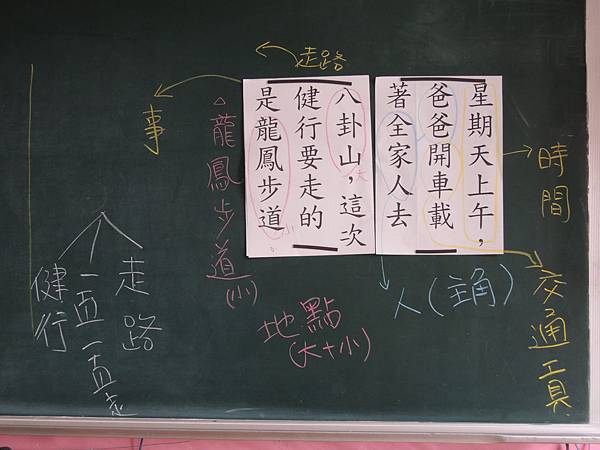 星期天上午，
爸爸開車載
著全家人去
八卦山，這次
健行要走的
是龍鳳步道
時間
交通工具
人（主角）
走路
大
小
地點
(大+小)
△龍鳳步道
(小)
事
走路
一直一直走
健行